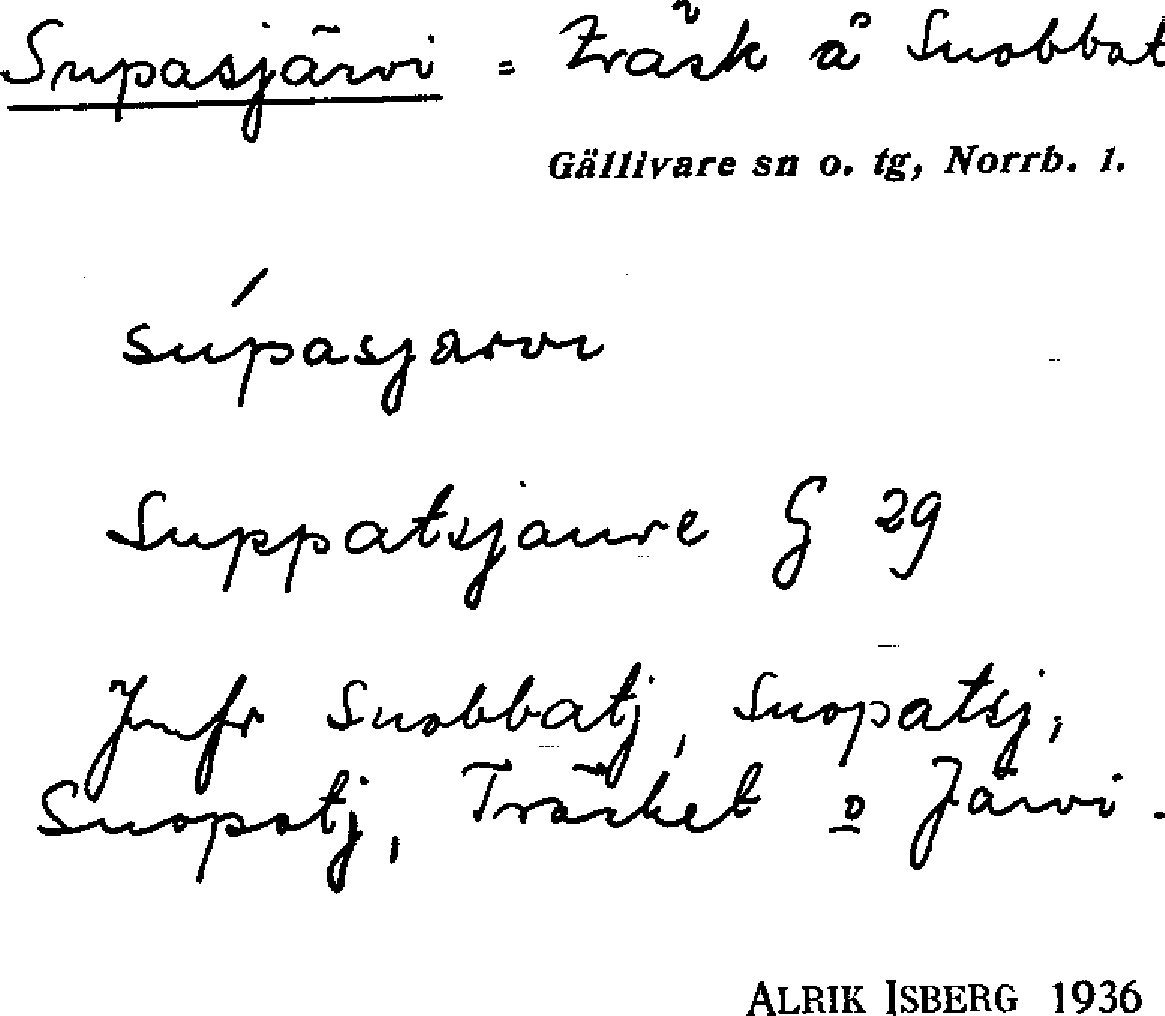 Supasjärvi = Träsk å Suobbat
Gällivare sn o. tg, Norrb. l.
súpasjarvi
Suppatsjaure G 29
Jmfr Suobbatj, Suopatsj,
Suopatj, Träsket o Järvi.
ALRIK ISBERG 1936